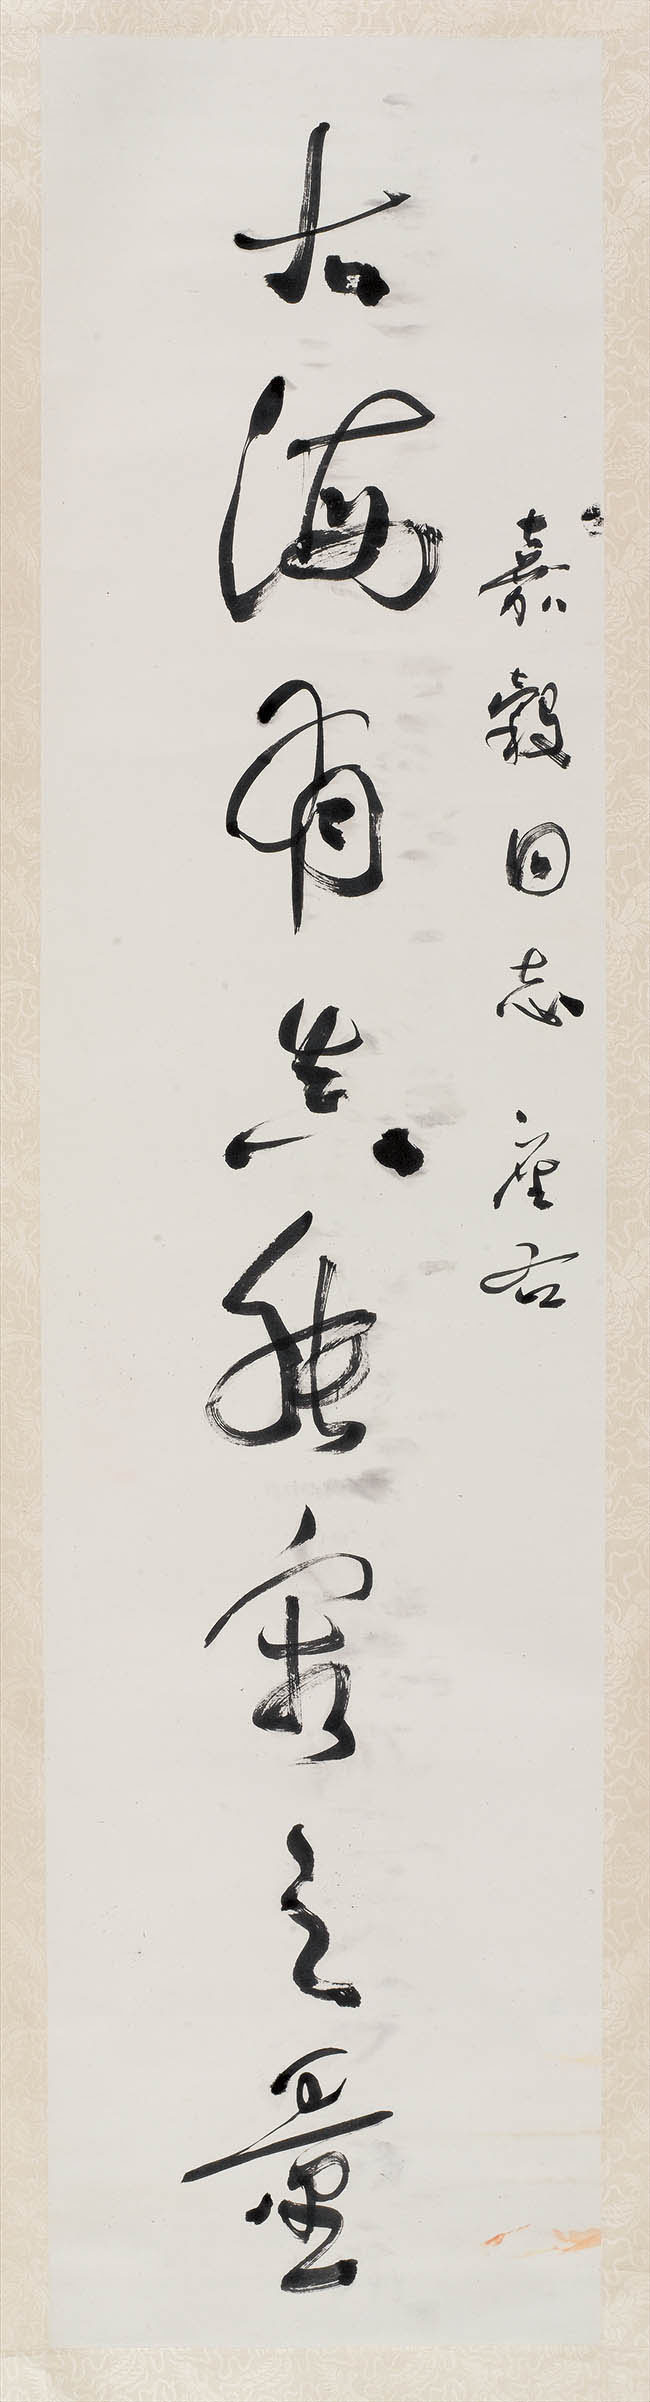 嘉穀同志 座右
大海有真能容之量